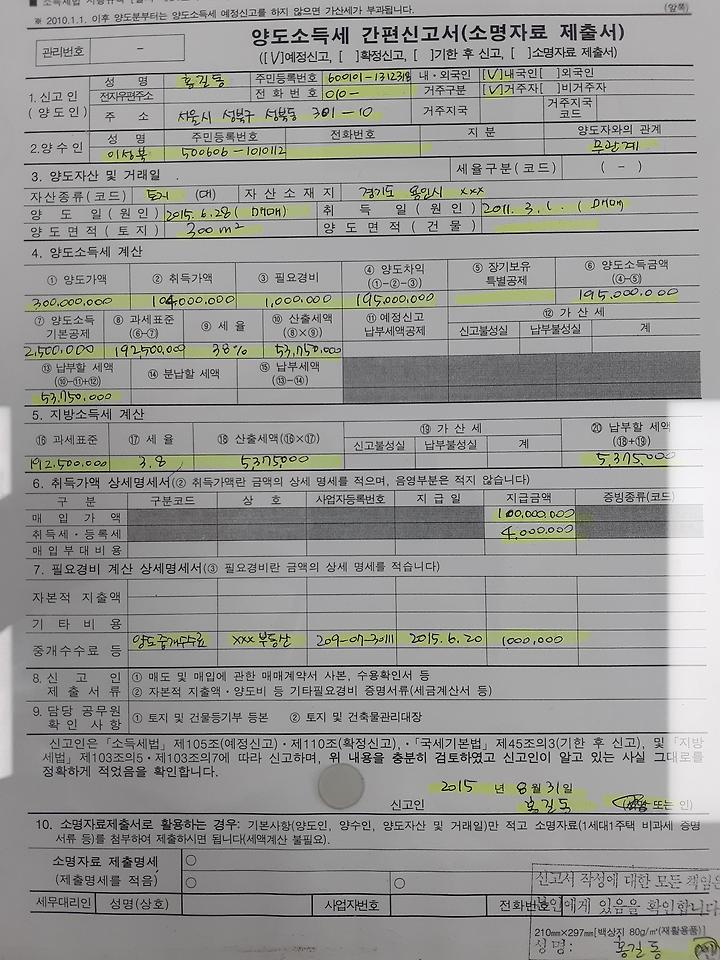 ※ 2010.1.1. 이후 양도분부터는 양도소득세 예정신고를 하지 않으면 가산세가 부과됩니다. (앞쪽)
관리번호 -
양도소득세 간편신고서(소명자료 제출서)
([√]예정신고, [ ]확정신고, [ ]기한 후 신고, [ ]소명자료 제출서)
1.신고인 (양도인) 성 명 홍길동 주민등록번호 600101-1312318 내·외국인 [√]내국인[ ]외국인
전자우편주소 전 화 번 호 010- 거주구분 [√]거주자[ ]비거주자
주 소 서울시 성북구 성북동 301-10 거주지국 거주지국 코드
2.양수인 성 명 주민등록번호 전화번호 지 분 양도자와의 관계
이성복 500606-1010112 무관계
3. 양도자산 및 거래일 세율구분(코드) ( - )
자산종류(코드) 토지 (대) 자 산 소 재 지 경기도 용인시 xxx
양 도 일(원인) 2015.6.28 ( 매매) 취 득 일(원인) 2011. 3. 1. ( 매매)
양도면적(토지) 300m² 양도면적(건물)
4. 양도소득세 계산
① 양도가액 ② 취득가액 ③ 필요경비 ④ 양도차익 (①-②-③) ⑤ 장기보유 특별공제 ⑥ 양도소득금액 (④-⑤)
300.000.000 104.000.000 1,000.000 195,000.000 195.000.000
⑦ 양도소득 기본공제 ⑧ 과세표준 (⑥-⑦) ⑨ 세 율 ⑩ 산출세액 (⑧×⑨) ⑪ 예정신고 납부세액공제 ⑫ 가 산 세
신고불성실 납부불성실 계
2,500.000 192500.000 38% 53,750.000
⑬ 납부할 세액 (⑩-⑪+⑫) ⑭ 분납할 세액 ⑮ 납부세액 (⑬-⑭)
53.750.000
5. 지방소득세 계산
⑯ 과세표준 ⑰ 세 율 ⑱ 산출세액(⑯×⑰) ⑲ 가 산 세 ⑳ 납부할 세액 (⑱+⑲)
신고불성실 납부불성실 계
192.500.000 3.8 5,375,000 5,375.000
6. 취득가액 상세명세서(② 취득가액란 금액의 상세 명세를 적으며, 음영부분은 적지 않습니다)
구 분 구분코드 상 호 사업자등록번호 지 급 일 지급금액 증빙종류(코드)
매 입 가 액 100,000,000
취득세·등록세 4.000.000
매입부대비용
7. 필요경비 계산 상세명세서(③ 필요경비란 금액의 상세 명세를 적습니다)
자본적 지출액
기 타 비 용
중개수수료 등 양도중개수수료 xxx부동산 209-07-30111 2015.6.20 1000,000
8. 신 고 인 제 출 서 류 ① 매도 및 매입에 관한 매매계약서 사본, 수용확인서 등
② 자본적 지출액·양도비 등 기타필요경비 증명서류(세금계산서 등)
9. 담당 공무원 확 인 사 항 ① 토지 및 건물등기부 등본 ② 토지 및 건축물관리대장
신고인은 「소득세법」 제105조(예정신고)·제110조(확정신고), ·「국세기본법」 제45조의3(기한 후 신고), 및 「지방
세법」 제103조의5·제103조의7에 따라 신고하며, 위 내용을 충분히 검토하였고 신고인이 알고 있는 사실 그대로를
정확하게 적었음을 확인합니다.
2015 년 8월 31일
신고인 홍길동 (서명 또는 인)
10. 소명자료제출서로 활용하는 경우: 기본사항(양도인, 양수인, 양도자산 및 거래일)만 적고 소명자료(1세대1주택 비과세 증명
서류 등)를 첨부하여 제출하시면 됩니다(세액계산 불필요).
소명자료 제출명세 ○
(제출명세를 적음) ○ ○
세무대리인 성명(상호) 사업자번호 전화번호
신고서 작성에 대한 모든 책임은
본인에게 있음을 확인합니다
210㎜×297㎜[백상지 80g/㎡(재활용품)]
성 명: 홍길동